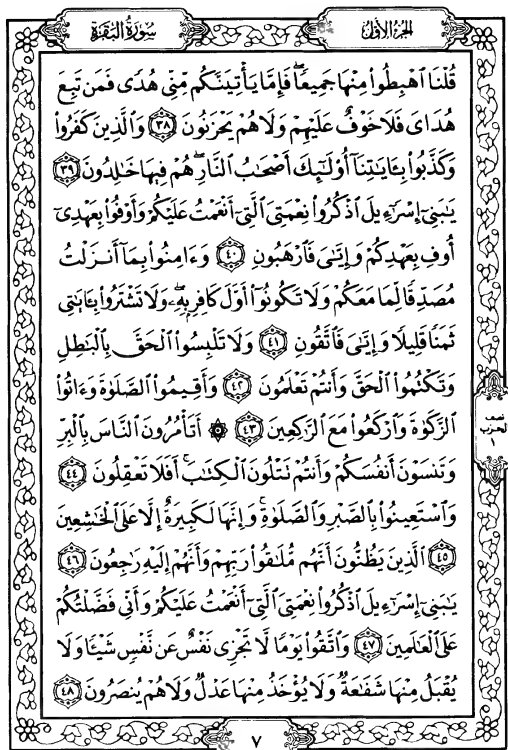 سُورَةُ البَقَرَةِ
الجزء الأول
قُلْنَا ٱهْبِطُوا۟ مِنْهَا جَمِيعًا ۖ فَإِمَّا يَأْتِيَنَّكُم مِّنِّى هُدًى فَمَن تَبِعَ
هُدَاىَ فَلَا خَوْفٌ عَلَيْهِمْ وَلَا هُمْ يَحْزَنُونَ ٣٨ وَٱلَّذِينَ كَفَرُوا۟
وَكَذَّبُوا۟ بِـَٔايَـٰتِنَآ أُو۟لَـٰٓئِكَ أَصْحَـٰبُ ٱلنَّارِ ۖ هُمْ فِيهَا خَـٰلِدُونَ ٣٩
يَـٰبَنِىٓ إِسْرَٰٓءِيلَ ٱذْكُرُوا۟ نِعْمَتِىَ ٱلَّتِىٓ أَنْعَمْتُ عَلَيْكُمْ وَأَوْفُوا۟ بِعَهْدِىٓ
أُوفِ بِعَهْدِكُمْ وَإِيَّـٰىَ فَٱرْهَبُونِ ٤٠ وَءَامِنُوا۟ بِمَآ أَنزَلْتُ
مُصَدِّقًا لِّمَا مَعَكُمْ وَلَا تَكُونُوٓا۟ أَوَّلَ كَافِرٍۭ بِهِۦ ۖ وَلَا تَشْتَرُوا۟ بِـَٔايَـٰتِى
ثَمَنًا قَلِيلًا وَإِيَّـٰىَ فَٱتَّقُونِ ٤١ وَلَا تَلْبِسُوا۟ ٱلْحَقَّ بِٱلْبَـٰطِلِ
وَتَكْتُمُوا۟ ٱلْحَقَّ وَأَنتُمْ تَعْلَمُونَ ٤٢ وَأَقِيمُوا۟ ٱلصَّلَوٰةَ وَءَاتُوا۟
ٱلزَّكَوٰةَ وَٱرْكَعُوا۟ مَعَ ٱلرَّٰكِعِينَ ٤٣ ۞ أَتَأْمُرُونَ ٱلنَّاسَ بِٱلْبِرِّ
وَتَنسَوْنَ أَنفُسَكُمْ وَأَنتُمْ تَتْلُونَ ٱلْكِتَـٰبَ ۚ أَفَلَا تَعْقِلُونَ ٤٤
وَٱسْتَعِينُوا۟ بِٱلصَّبْرِ وَٱلصَّلَوٰةِ ۚ وَإِنَّهَا لَكَبِيرَةٌ إِلَّا عَلَى ٱلْخَـٰشِعِينَ
٤٥ ٱلَّذِينَ يَظُنُّونَ أَنَّهُم مُّلَـٰقُوا۟ رَبِّهِمْ وَأَنَّهُمْ إِلَيْهِ رَٰجِعُونَ ٤٦
يَـٰبَنِىٓ إِسْرَٰٓءِيلَ ٱذْكُرُوا۟ نِعْمَتِىَ ٱلَّتِىٓ أَنْعَمْتُ عَلَيْكُمْ وَأَنِّى فَضَّلْتُكُمْ
عَلَى ٱلْعَـٰلَمِينَ ٤٧ وَٱتَّقُوا۟ يَوْمًا لَّا تَجْزِى نَفْسٌ عَن نَّفْسٍ شَيْـًٔا وَلَا
يُقْبَلُ مِنْهَا شَفَـٰعَةٌ وَلَا يُؤْخَذُ مِنْهَا عَدْلٌ وَلَا هُمْ يُنصَرُونَ ٤٨
نصف
الحزب
١
٧